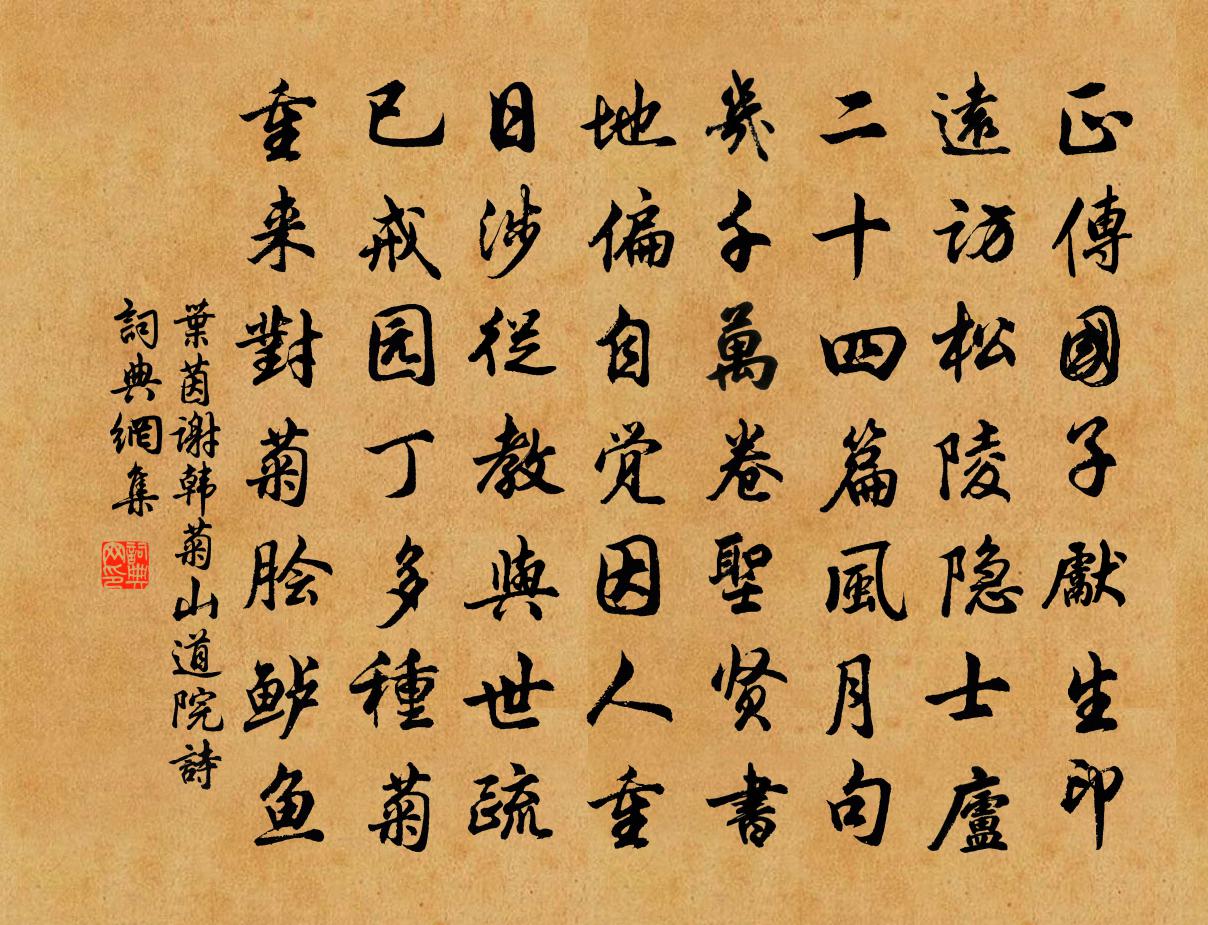 正傳國子獻生印
遠訪松陵隐士廬
二十四篇風月句
幾千萬卷聖贤書
地偏自觉因人重
日涉從教與世疏
已戒园丁多種菊
重来對菊脍鲈鱼
葉茵谢韩菊山道院詩
詞典網集
詞典網印